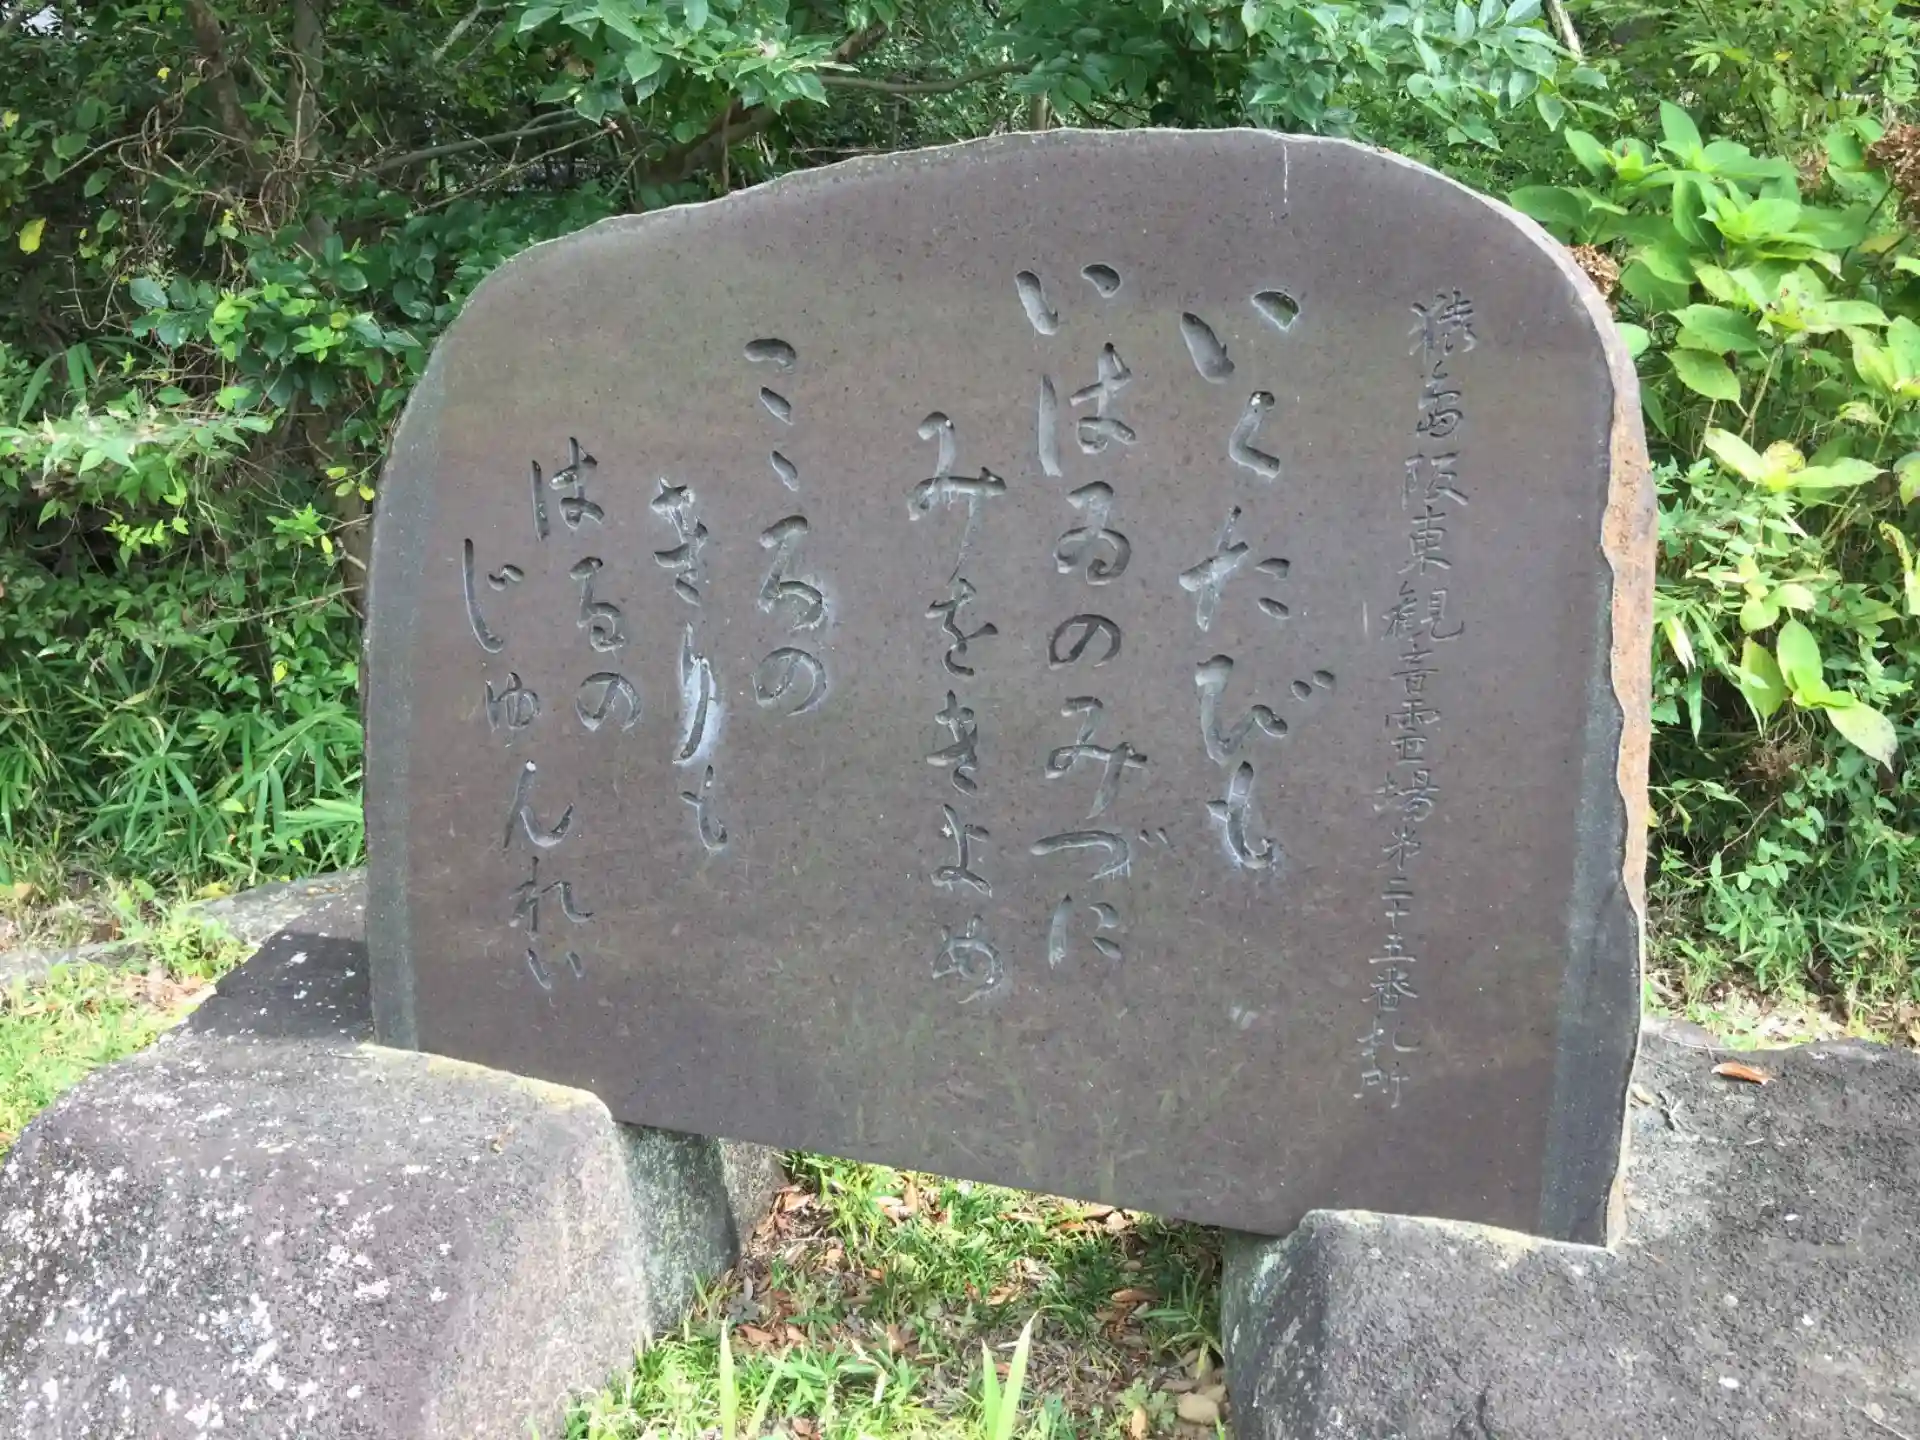 猿島阪東観音霊場第二十五番札所
いくたびも
いはゐのみづに
みをきよめ
こゝろの
きりも
はるの
じゆんれい